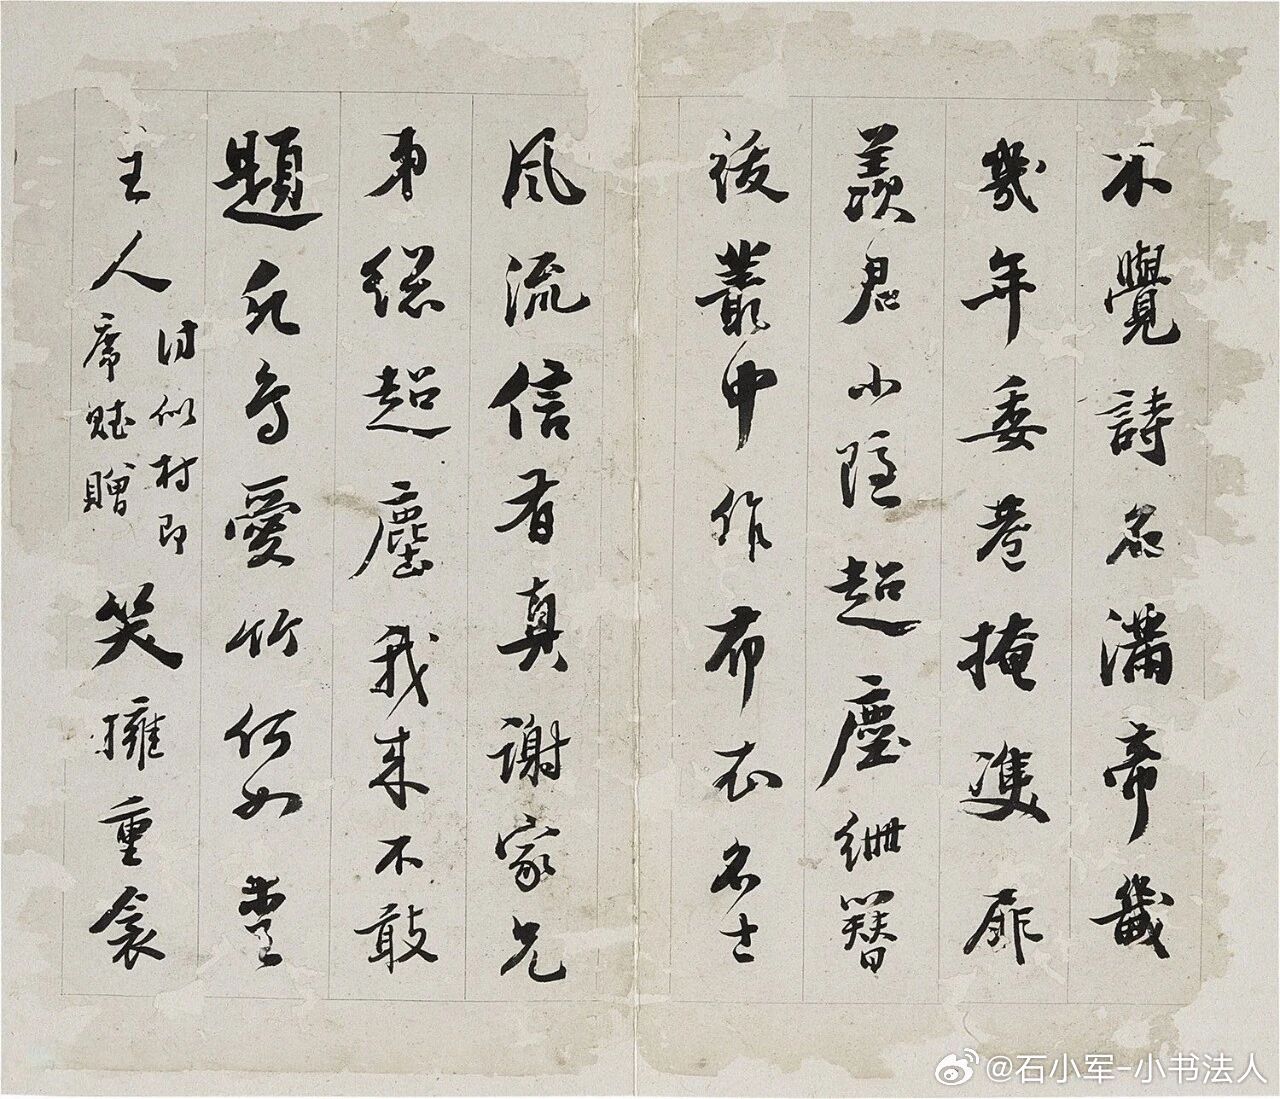 不覺詩名滿帝畿
幾年委巷掩雙扉
羨君小隱超塵網簪
紱叢中作布衣名士
風流信有真謝家兄
弟總超塵我來不敢
題凡鳥愛竹何如愛
主人
付似村即
席賦贈
笑擁重衾
@石小军-小书法人